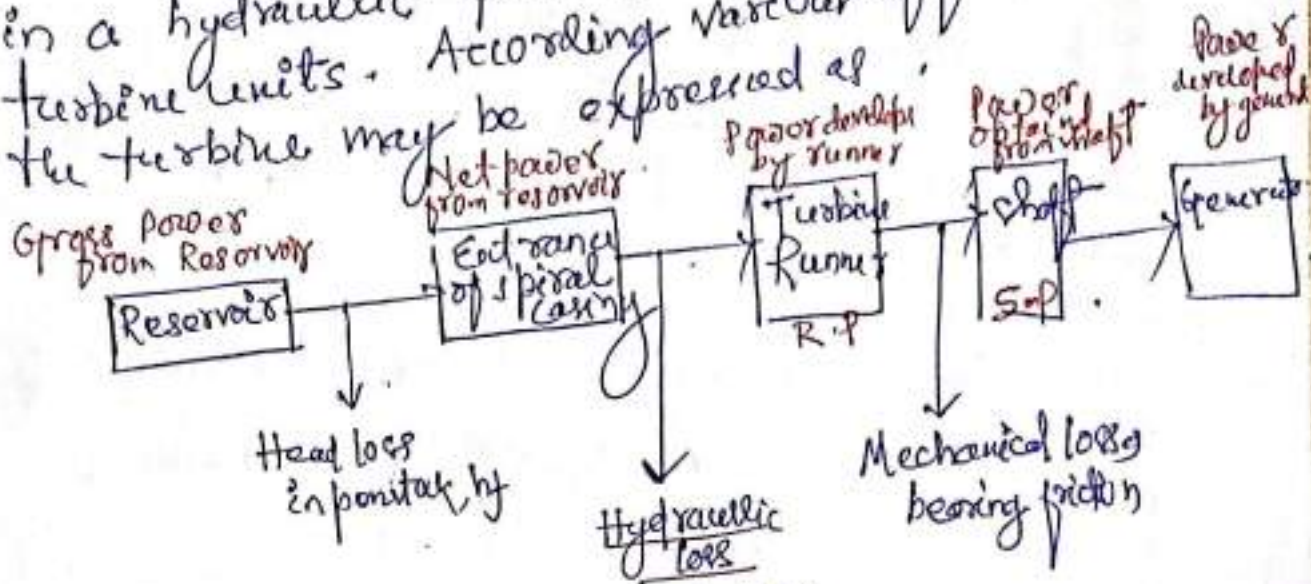 in a hydraulic
turbine units. According various
the turbine may be expressed as
Gross Power
from Reservoir
Reservoir
Net power
from reservoir
Entrance
of spiral
casing
Power develope
by runner
Turbine
Runner
R.P
Power
from shaft
Shaft
S.P
Power
developed
by
Head loss
in hf
Hydraullic
loss
Mechanical loss,
bearing friction